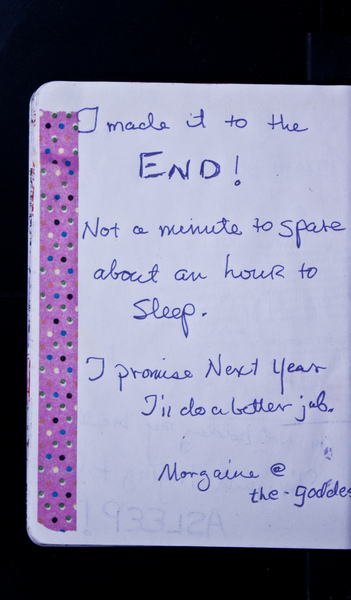 I made it to the
END!
Not a minute to spare
about an hour to
Sleep.
I promise Next Year
I'll do a better job.
Morgaine @
the-goddes
ASLEEP!